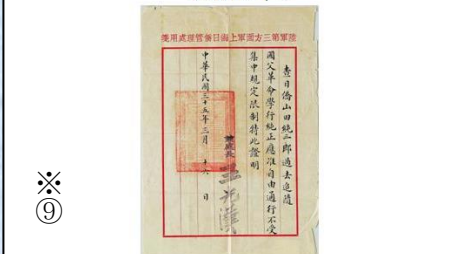 陸軍第三方面軍上海日僑管理處用箋
查日僑山田純三郎過去追隨
國父革命學行純正應准自由通行不受
集中規定限制特此證明
處長 王光漢
中華民國三十五年三月 十六 日
※
⑨